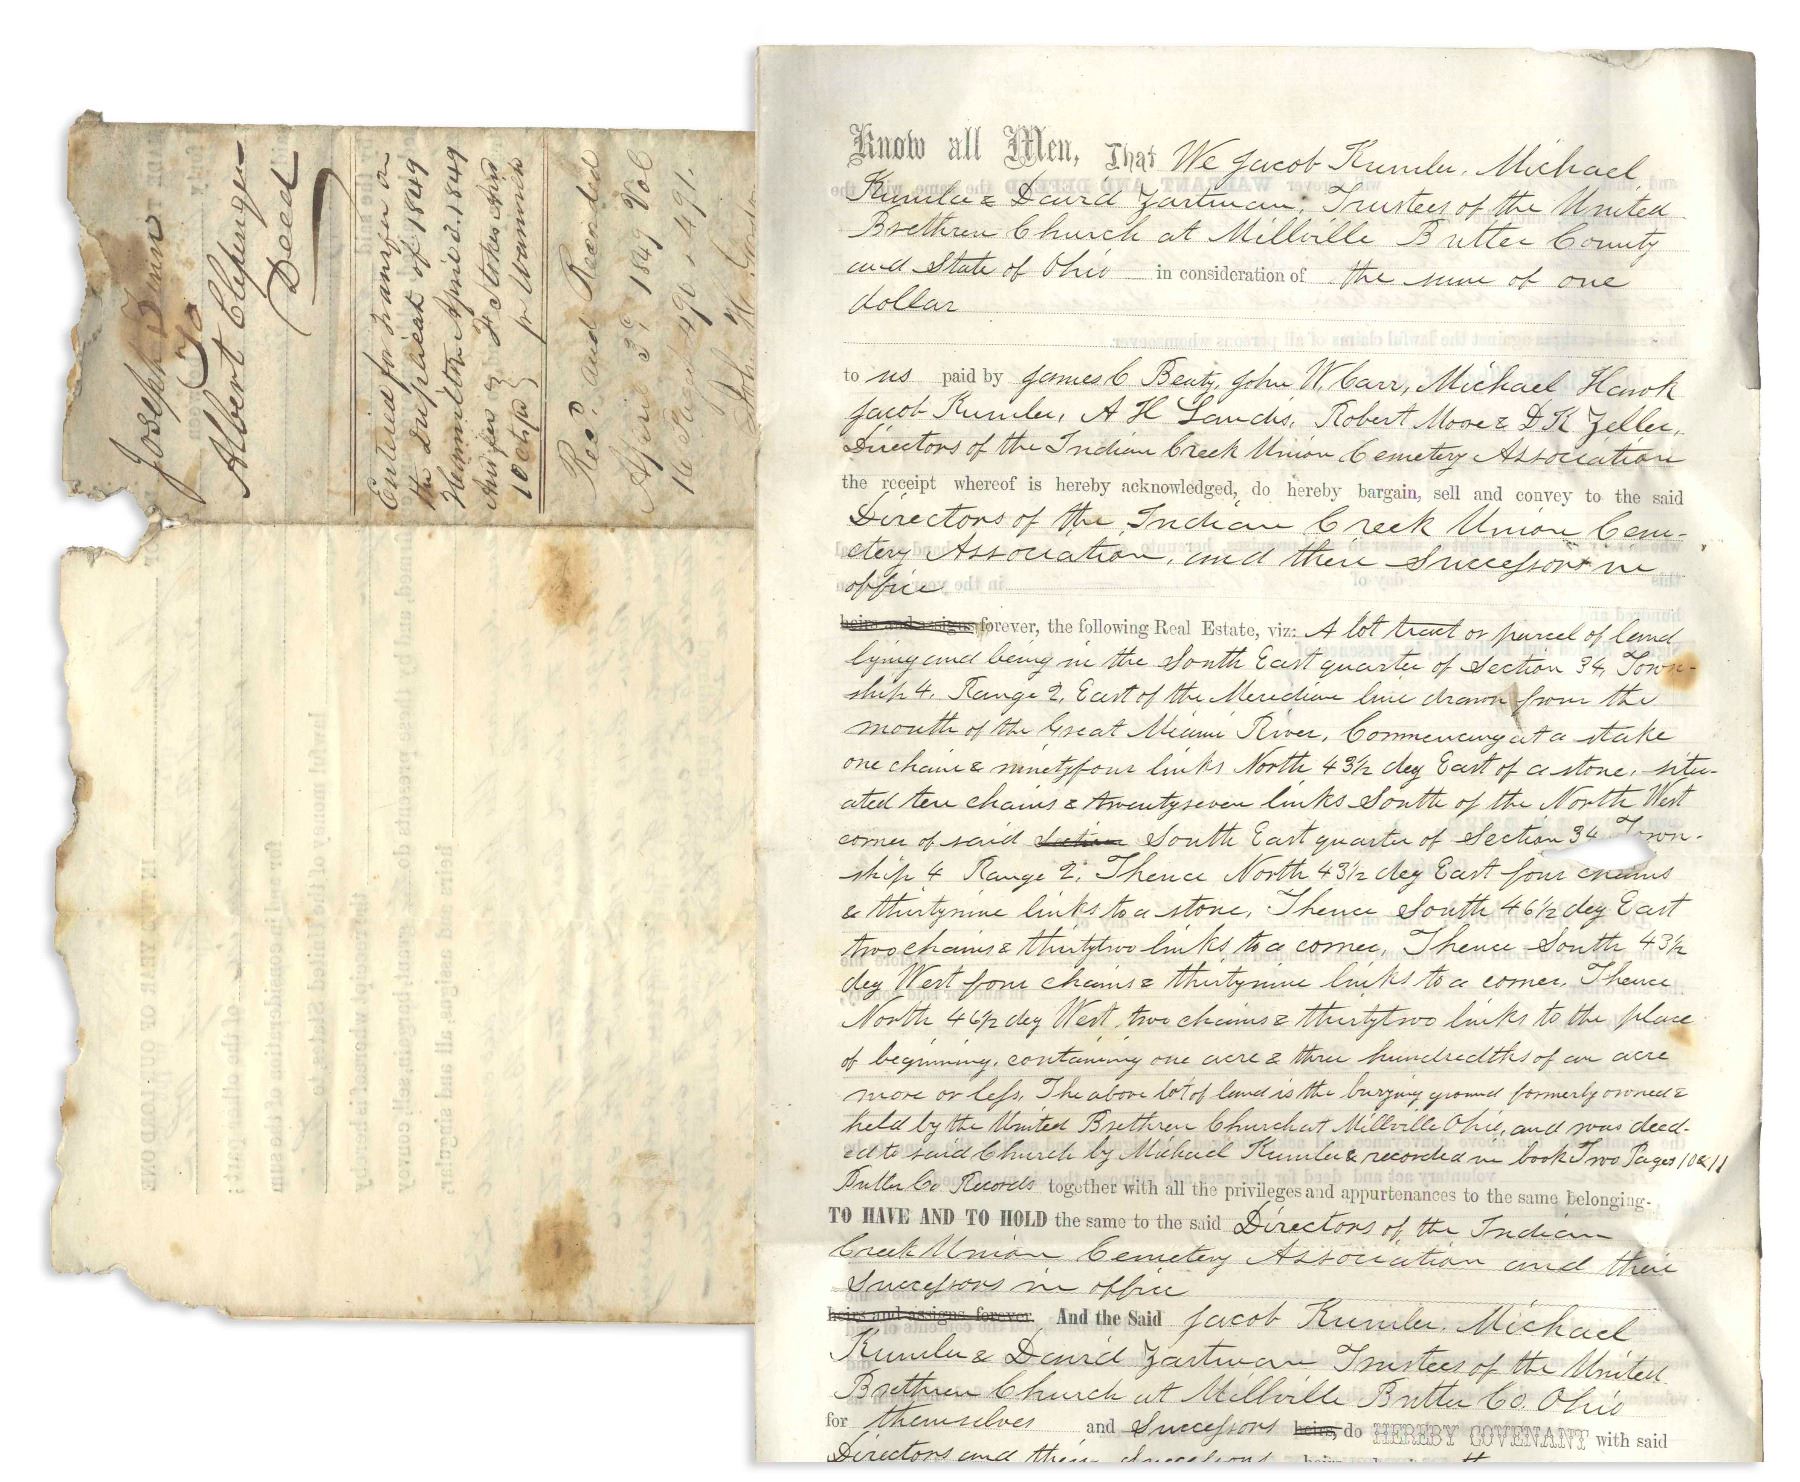 Joseph
To
Albert Clepenger
Deed
Entered for Transfer on
the Duplicate of 1849
Hammilton April 2. 1849
F Stokes Aud
pr Wannick
10 cts pd
Recd. and Recorded
April 3d, 1849 Vol
16 Pages 490 & 491.
Know all Men, That We Jacob Kumler, Michael
Kumler & David Zartman, Trustees of the United
Brethren Church at Millville Butler County
and State of Ohio in consideration of the sum of one
dollar
to us paid by James C Beaty, John W. Carr, Michael Hawk
Jacob Kumler, A H Landis, Robert Moore & D K Zeller,
Directors of the Indian Creek Union Cemetery Association
the receipt whereof is hereby acknowledged, do hereby bargain, sell and convey to the said
Directors of the Indian Creek Union Cem-
etery Association, and their Successors in
office
heirs and assigns forever, the following Real Estate, viz: A lot tract or parcel of land
lying and being in the South East quarter of Section 34, Town-
ship 4, Range 2, East of the Meridian line drawn from the
mouth of the Great Miami River, Commencing at a stake
one chain & ninetyfour links North 43½ deg East of a stone, situ-
ated ten chains & twentyseven links South of the North West
corner of said Section South East quarter of Section 34 Town-
ship 4 Range 2, Thence North 43½ deg East four chains
& thirtynine links to a stone, Thence South 46½ deg East
two chains & thirtytwo links to a corner, Thence South 43½
deg West four chains & thirtynine links to a corner, Thence
North 46½ deg West, two chains & thirtytwo links to the place
of beginning, containing one acre & three hundredths of an acre
more or less, The above lot of land is the burying ground formerly owned &
held by the United Brethren Church at Millville Ohio, and was deed-
ed to said Church by Michael Kumler & recorded in book Two Pages 10 & 11
Butler Co Records together with all the privileges and appurtenances to the same belonging.
TO HAVE AND TO HOLD the same to the said Directors of the Indian
Creek Union Cemetery Association and their
Successors in office
heirs and assigns forever. And the Said Jacob Kumler, Michael
Kumler & David Zartman Trustees of the United
Brethren Church at Millville Butler Co. Ohio
for themselves and Successors heirs, do HEREBY COVENANT with said
Directors and their Successors